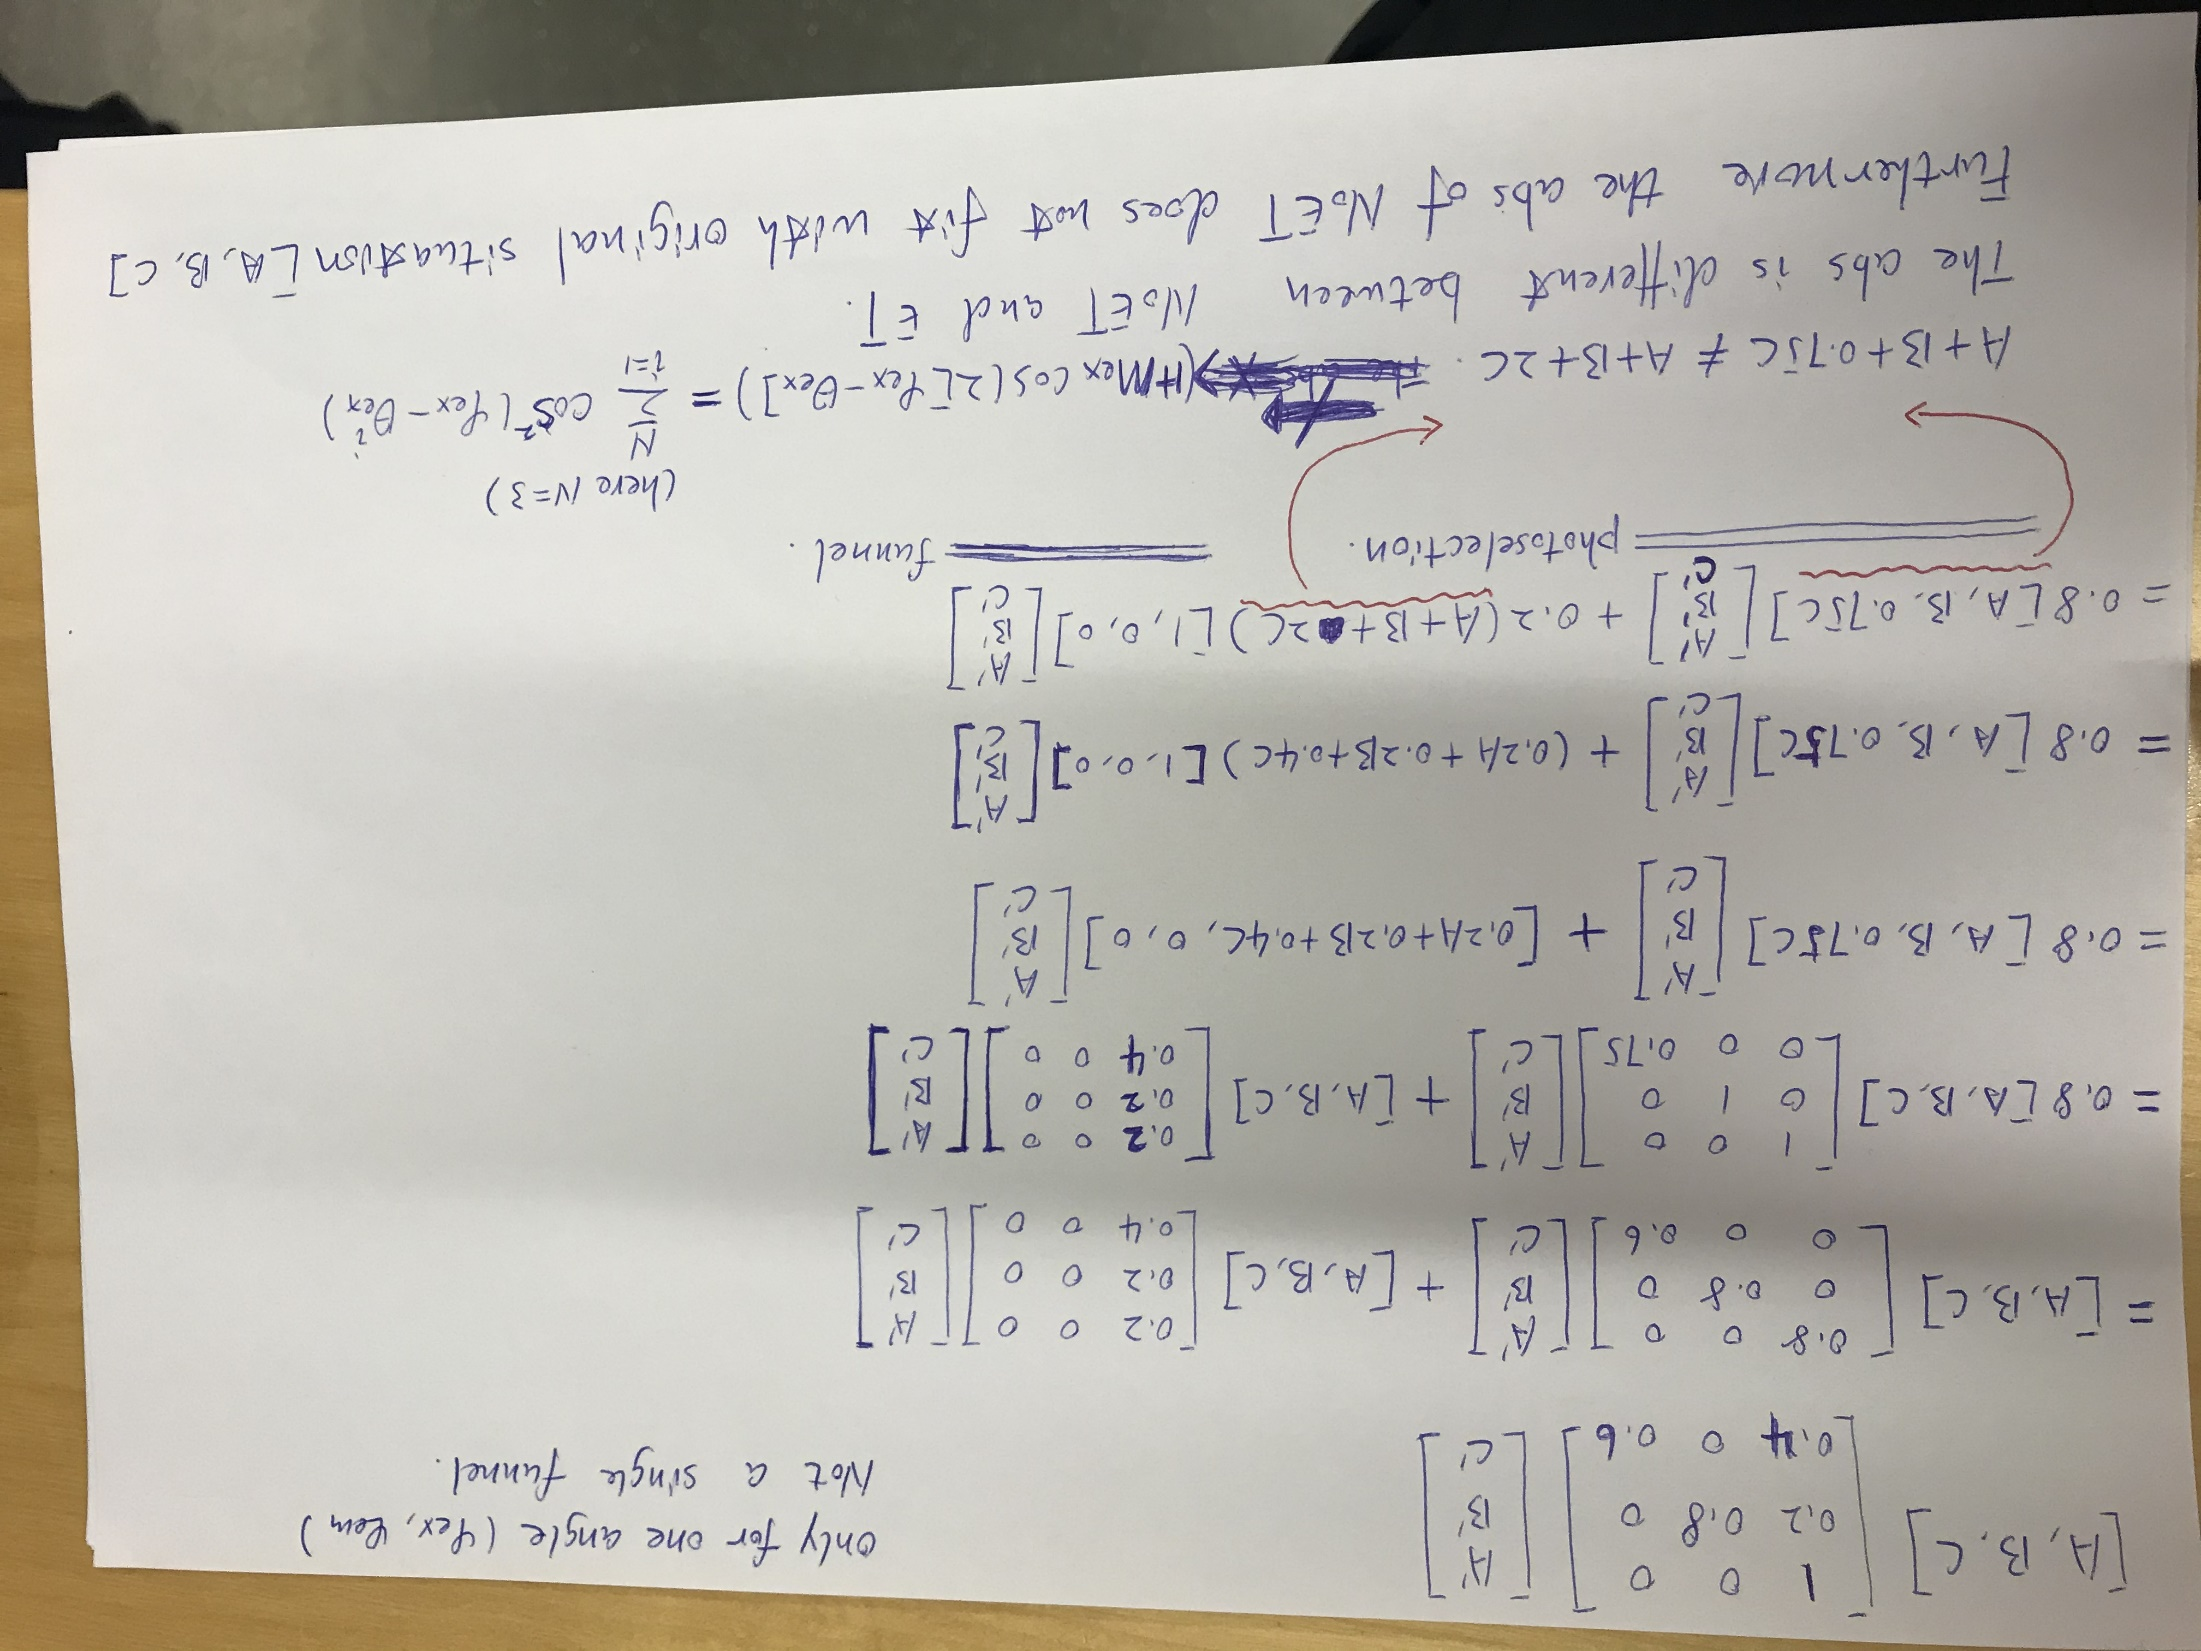 [A, B, C] [1 0 0; 0.2 0.8 0; 0.4 0 0.6] [A'; B'; C']
only for one angle (φex, φem)
Not a single funnel.
= [A, B, C] [0.8 0 0; 0 0.8 0; 0 0 0.6] [A'; B'; C'] + [A, B, C] [0.2 0 0; 0.2 0 0; 0.4 0 0] [A'; B'; C']
= 0.8 [A, B, C] [1 0 0; 0 1 0; 0 0 0.75] [A'; B'; C'] + [A, B, C] [0.2 0 0; 0.2 0 0; 0.4 0 0] [A'; B'; C']
= 0.8 [A, B, 0.75C] [A'; B'; C'] + [0.2A+0.2B+0.4C, 0, 0] [A'; B'; C']
= 0.8 [A, B, 0.75C] [A'; B'; C'] + (0.2A+0.2B+0.4C) [1, 0, 0] [A'; B'; C']
= 0.8 [A, B, 0.75C] [A'; B'; C'] + 0.2 (A+B+2C) [1, 0, 0] [A'; B'; C']
photoselection. funnel.
(here N=3)
A+B+0.75C ≠ A+B+2C. (1+Mex cos(2[φex-θex]) = N Σ i=1 cos²(φex-θex^i)
The abs is different between NoET and ET.
Furthermore the abs of NoET does not fit with original situation [A, B, C]